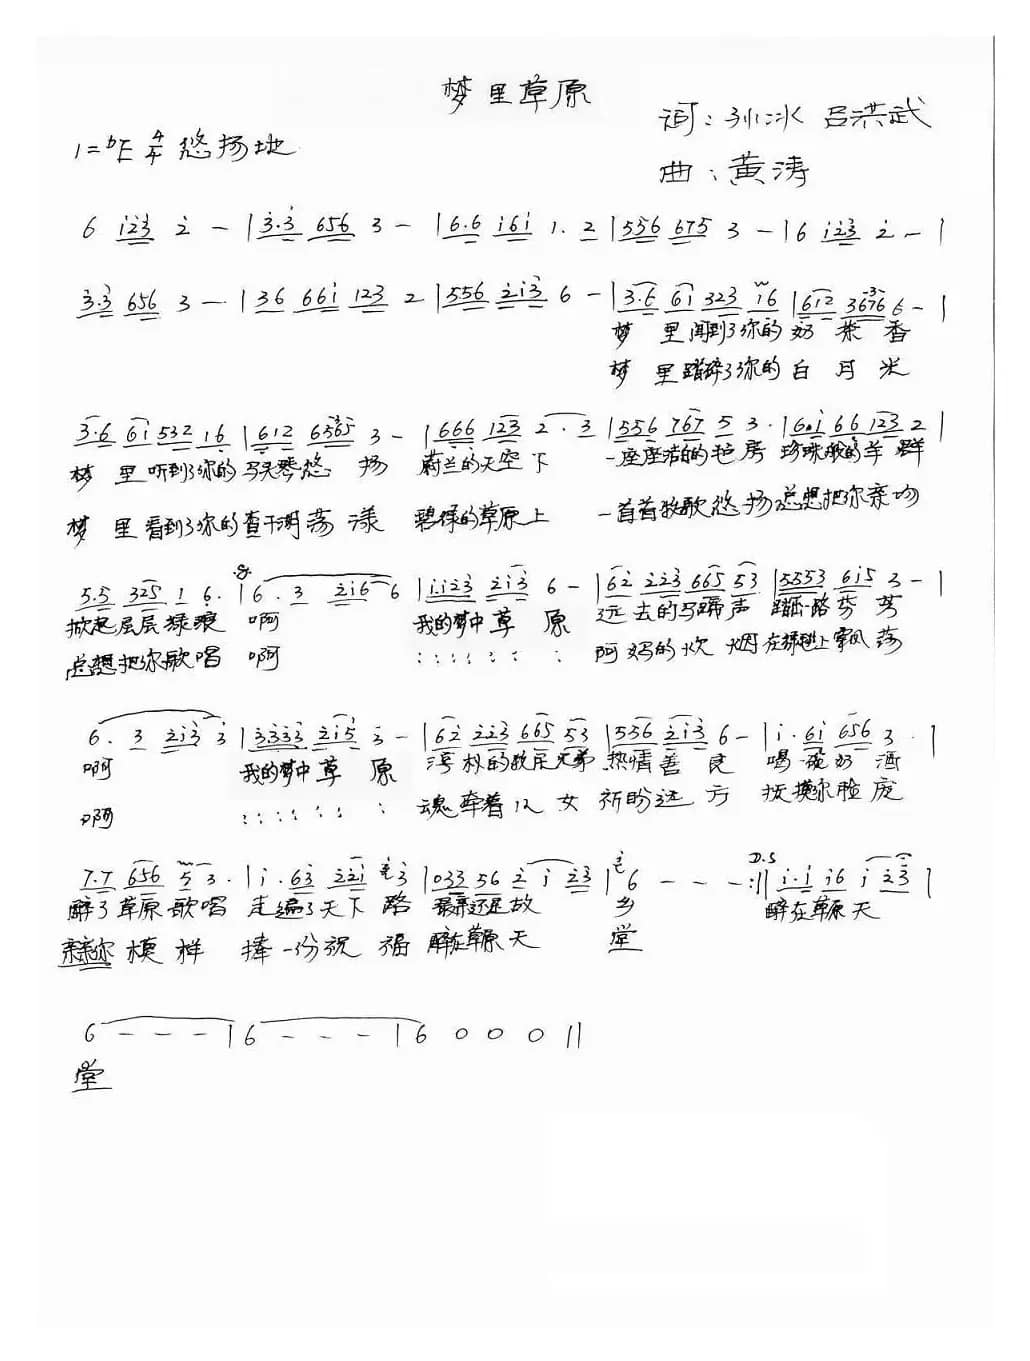 梦里草原
词：孙冰 吕洪武
1=ᵇE 4/4 悠扬地
曲：黄涛
6 123 2 - | 3·3 656 3 - | 6·6 161 1· 2 | 556 675 3 - | 6 123 2 - |
3·3 656 3 - | 36 661 123 2 | 556 213 6 - | 3·6 61 323 16 | 612 3676 6 - |
梦 里闻到了你的 奶 茶 香
梦 里踏碎了你的 白 月 光
3·6 61 532 16 | 612 6565 3 - | 666 123 2· 3 | 556 767 5 3· | 6·1 66 123 2 |
梦 里听到了你的 马头琴悠 扬 蔚兰的天空 下 一座座洁白的毡房 珍珠般的羊 群
梦 里看到了你的查干湖荡漾 碧绿的草原上 一首首牧歌悠扬总想把你亲吻
5·5 325 1 6· | 6· 3 216 6 | 1·123 213 6 - | 62 223 665 53 | 5553 615 3 - |
掀起层层绿浪 啊 我的梦中草 原 远去的马蹄声 踏出一路芬芳
总想把你歌唱 啊 : : : : : : 阿妈的炊 烟 在 上 飘荡
6· 3 213 3 | 3333 215 3 - | 62 223 665 53 | 536 213 6 - | 1· 61 656 3 · |
啊 我的梦中草 原 淳朴的牧民兄弟 热情善良 喝一碗奶 酒
啊 : : : : : : 魂牵着儿 女 祈盼远 方 抚摸你脸庞
7·7 656 5 3· | 1· 63 221 3 | 033 56 2 1 23 | 6 - - - :|| D.S 1·1 16 1 23 |
醉了草原歌唱 走遍了天下 路 最亲还是故 乡 醉在草原天
亲亲你 模 样 捧一份祝 福 醉在草原天 堂
6 - - - | 6 - - - | 6 0 0 0 ||
堂